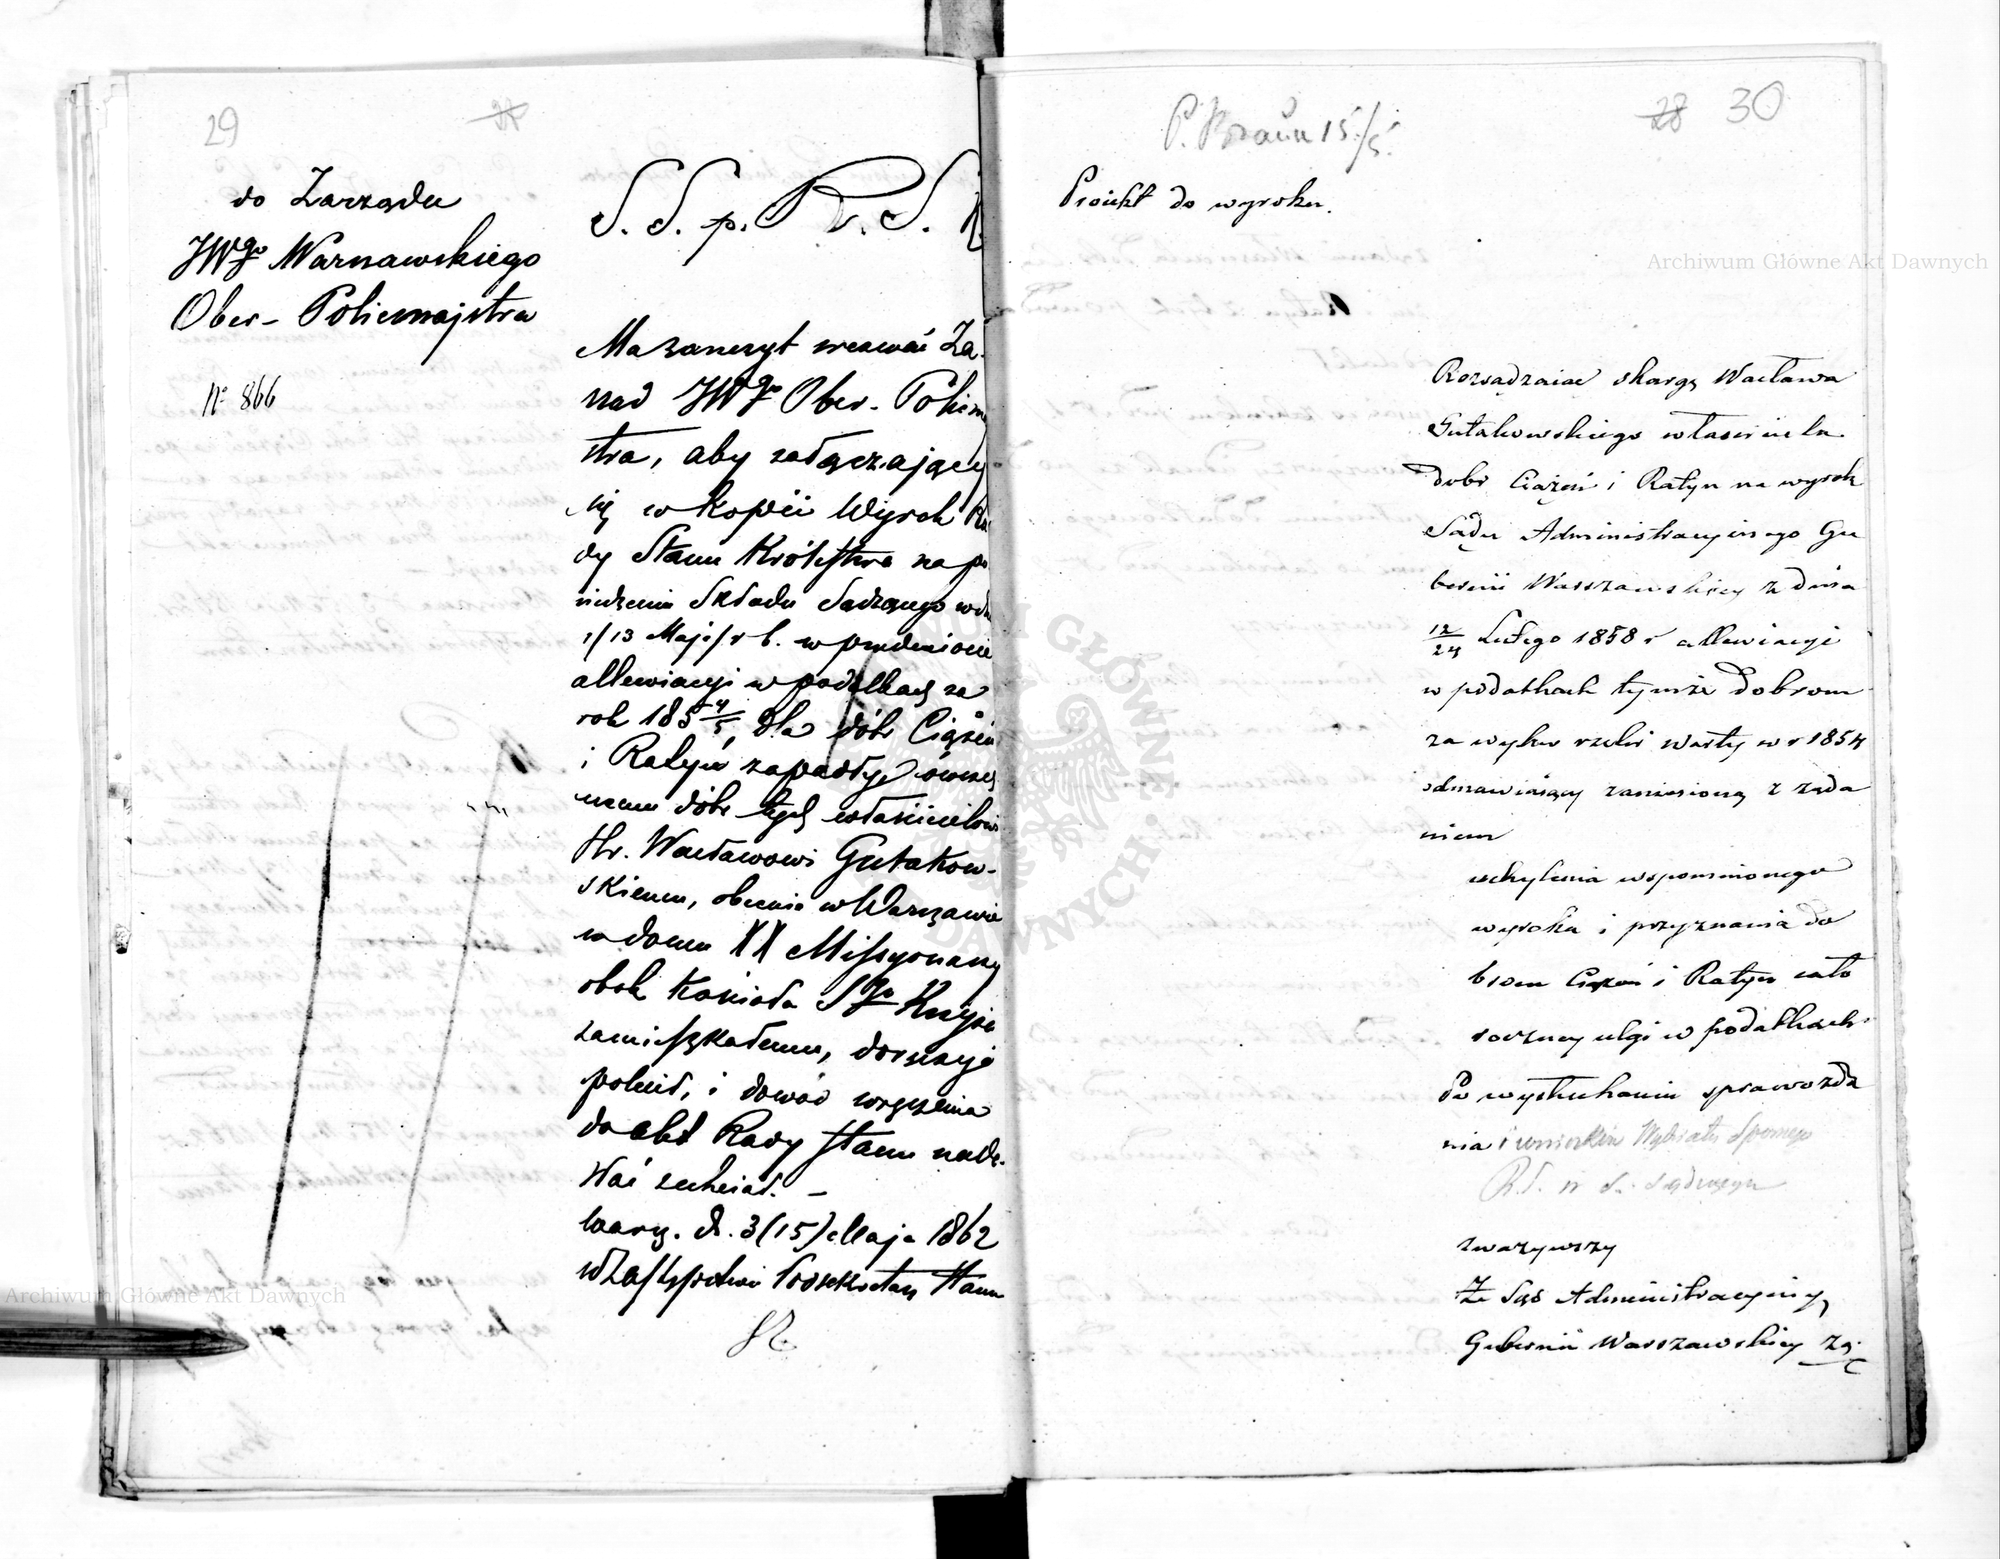 29
do Zarządu
JWgo Warszawskiego
Ober-Policmajstra
No 866
S. S. p. R. S.
Ma zaszczyt wezwać Za-
rząd JWgo Ober-Policmaj
stra, aby załączający
się w kopii Wyrok Ra
dy Stanu Królestwa na po
siedzeniu Składu Sądzącego w dn
1/13 Maja r b. w przedmiocie
allewiacyi w podatkach za
rok 1854/5 dla dóbr Ciążeń
i Ratyń zapadły, ówczes
nemu dóbr tych właścicielowi
Hr. Wacławowi Gutakow-
skiemu, obecnie w Warszawie
w domu XX Missyonarzy
obok Kościoła Sgo Krzyża
zamieszkałemu, doręczyć
polecił, i dowód wręczenia
do akt Rady Stanu nade-
słać zechciał. –
Warsz. d. 3 (15) Maja 1862
w Zastępstwie Sekretarz Stanu
28 30
P. Braun 15/5.
Proiekt do wyroku.
Rozsądzaiąc skargę Wacława
Gutakowskiego właściciela
dobr Ciążeń i Ratyn na wyrok
Sądu Administracyinego Gu
bernii Warszawskiey z dnia
12/24 Lutego 1858 r allewiacyi
w podatkach tymże dobrom
za wylew rzeki Warty w r 1854
odmawiaiący zaniesioną z żąda
niem
uchylenia wspomnionego
wyroku i przyznania do
brom Ciążeń i Ratyn cało
roczney ulgi w podatkach
Po wysłuchaniu sprawozda
nia i wniosków Wydziału Spornego
R. S. w S. Sądzącym
zważywszy
Że Sąd Administracyiny
Gubernii Warszawskiey za-
Archiwum Główne Akt Dawnych
Archiwum Główne Akt Dawnych